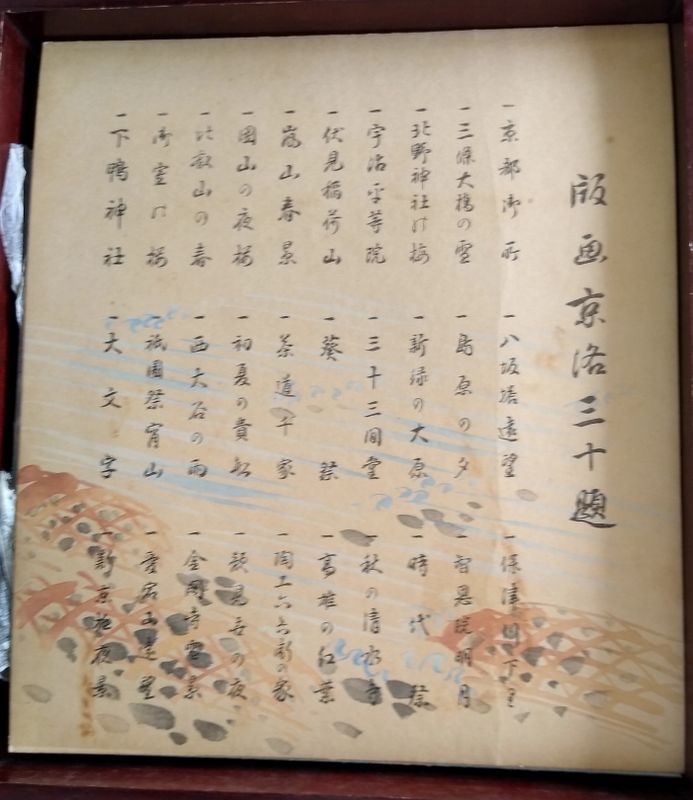 版画京洛三十題
一京都御所
一三條大橋の雪
一北野神社の梅
一宇治平等院
一伏見稲荷山
一嵐山春景
一圓山の夜桜
一比叡山の春
一御室の桜
一下鴨神社
一八坂塔遠望
一島原の夕
一新緑の大原
一三十三間堂
一葵祭
一茶道千家
一初夏の貴船
一西大谷の雨
一祇園祭宵山
一大文字
一保津川下里
一智恩院明月
一時代祭
一秋の清水寺
一高雄の紅葉
一陶工六兵衛の家
一顔見世の夜
一金閣寺雪景
一愛宕山遠望
一新京極夜景